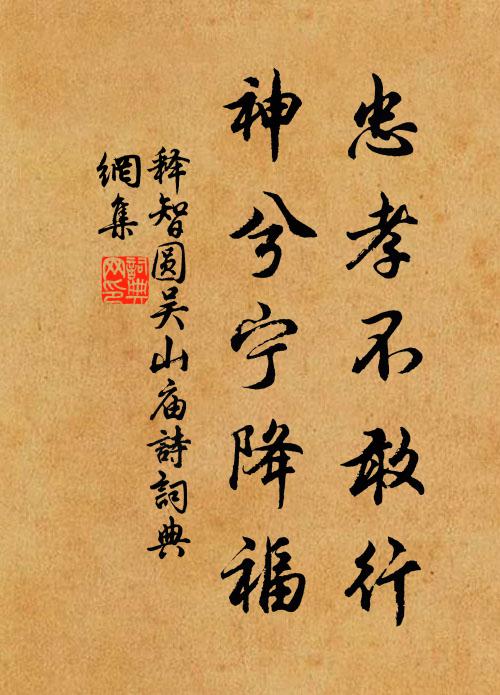 忠孝不敢行
神兮宁降福
释智圆吴山庙詩詞典
網集
詞典
网印